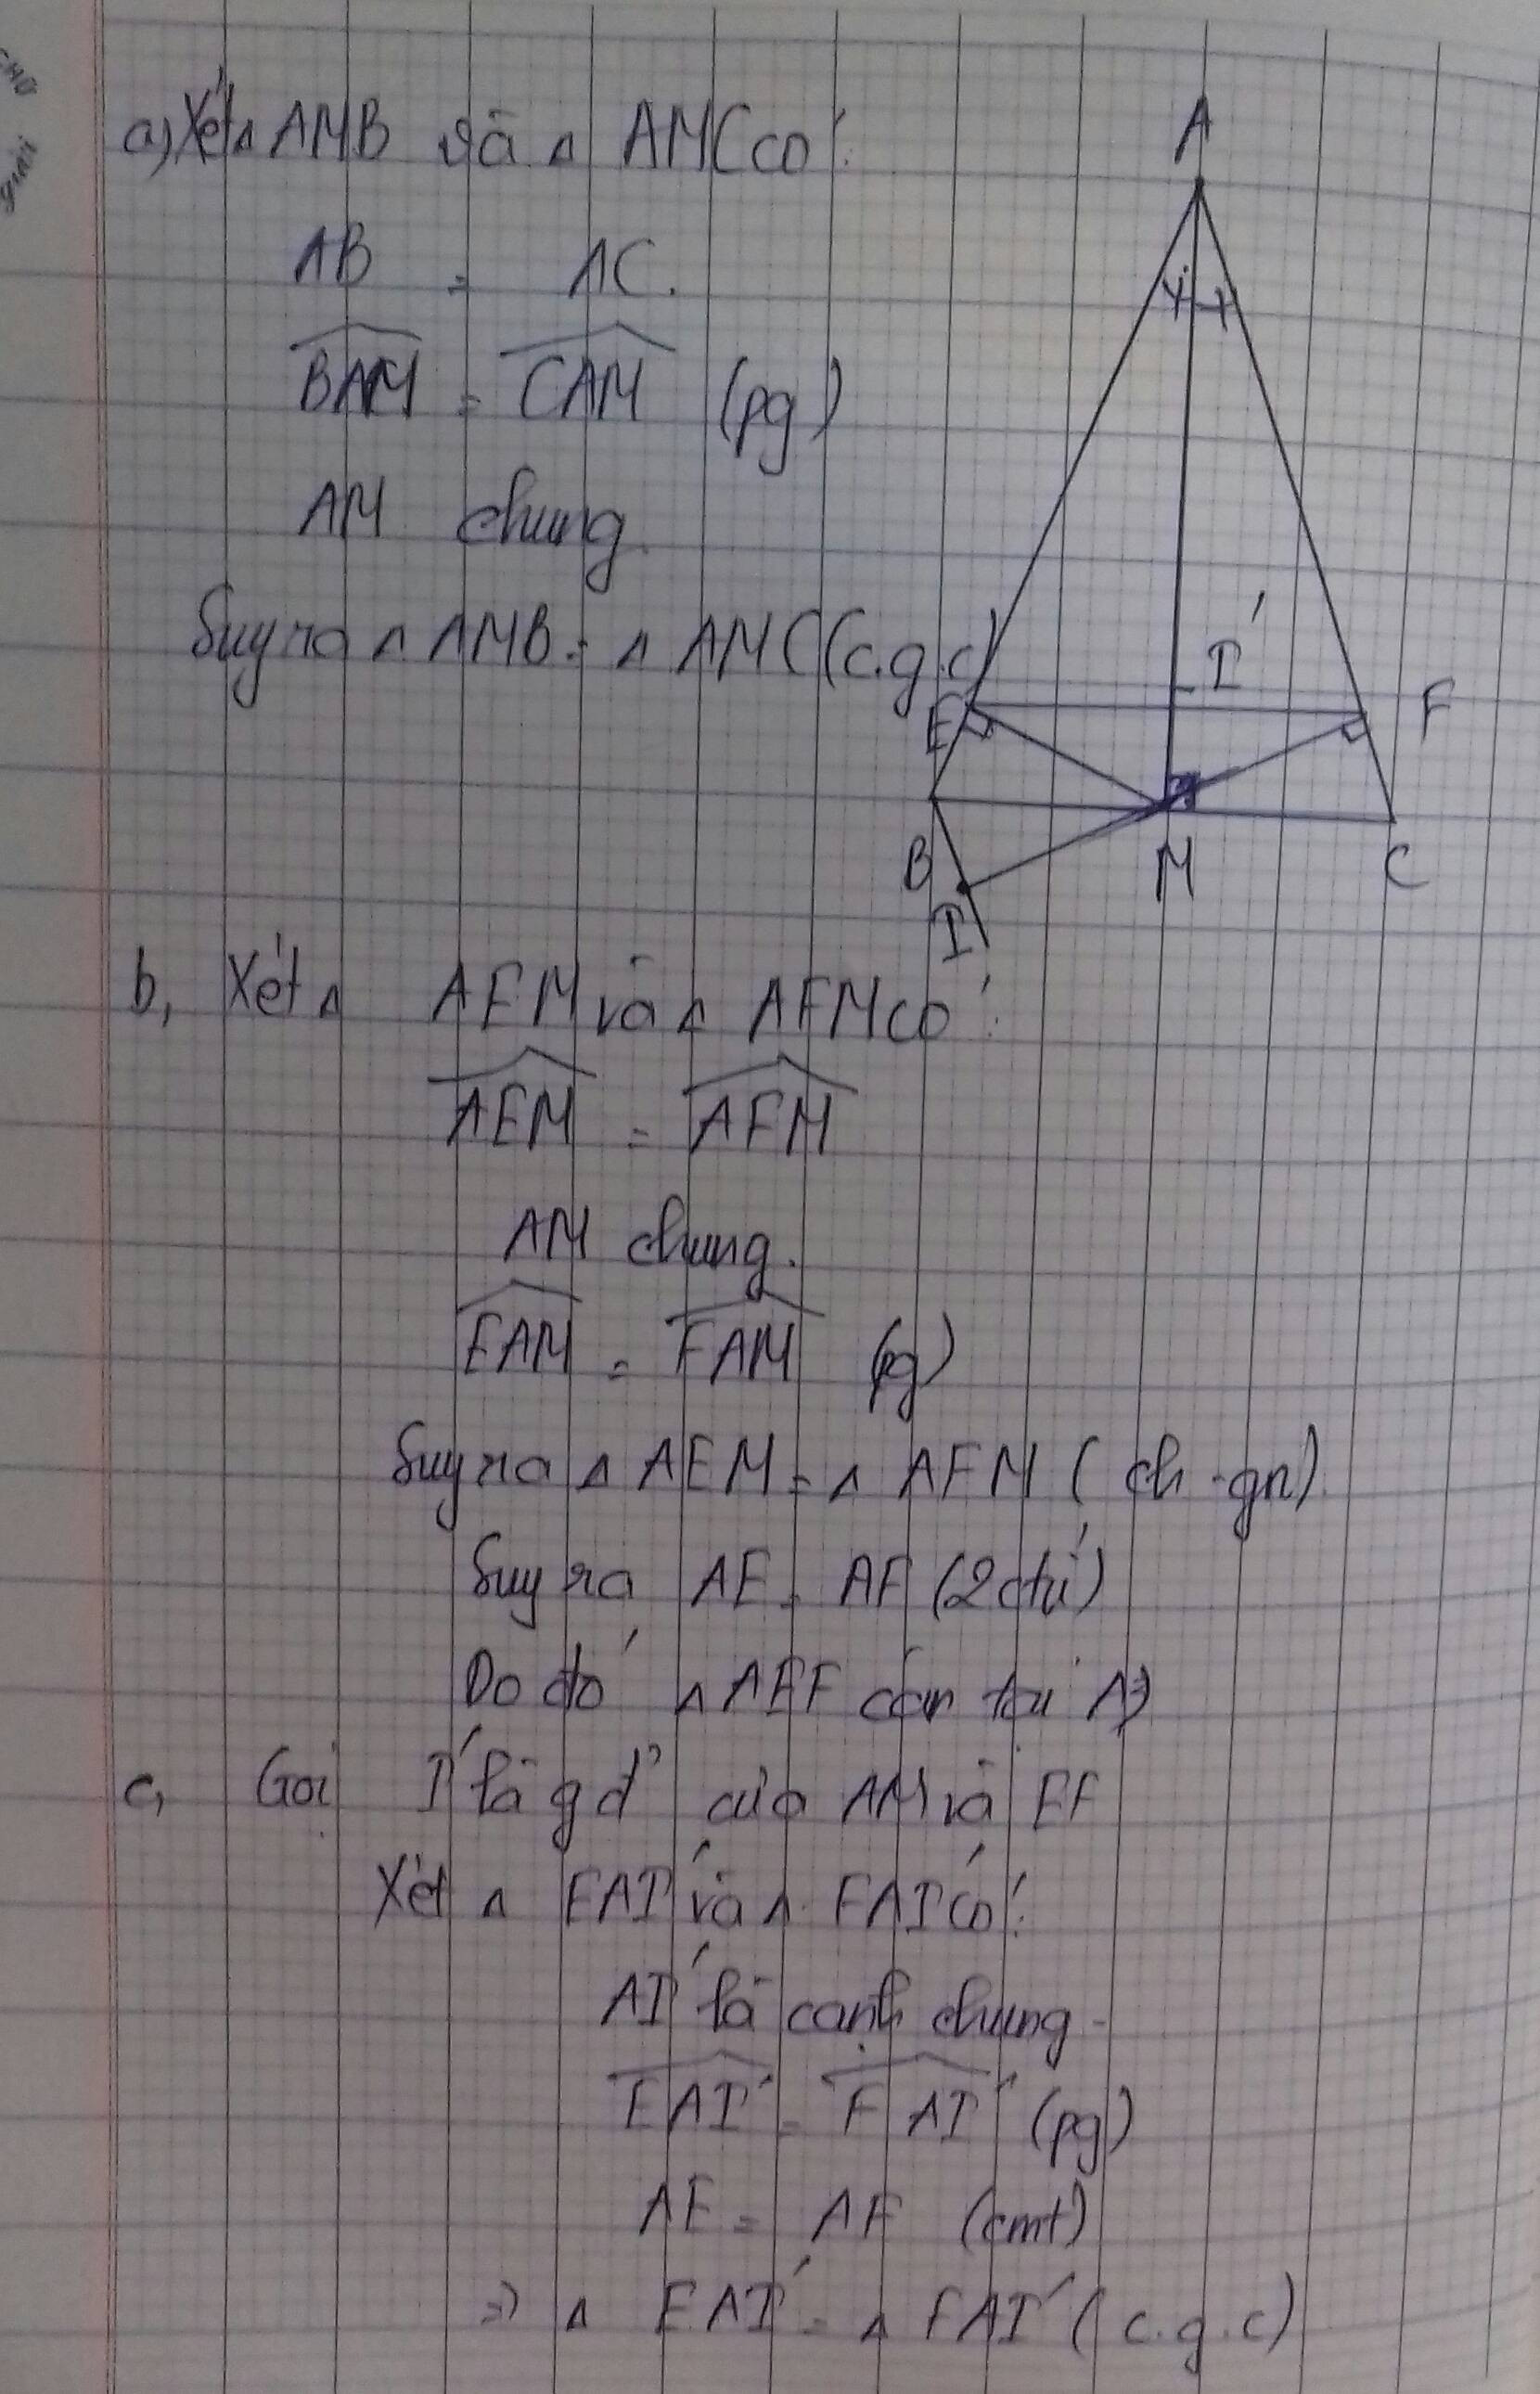 a) Xét Δ AMB và Δ AMC có:
AB = AC.
BAM = CAM (pg)
AM chung.
Suy ra Δ AMB = Δ AMC (c.g.c)
A
I'
E
F
B
M
C
I
b, Xét Δ AEM và Δ AFM có:
AEM = AFM
AM chung.
EAM = FAM (pg)
Suy ra Δ AEM = Δ AFM (ch - gn)
Suy ra AE = AF (2 ctứ)
Do đó Δ AEF cân tại A
c, Gọi I' là gđ' của AM và EF
Xét Δ EAI' và Δ FAI' có:
AI' là cạnh chung
EAI' = FAI' (pg)
AE = AF (cmt)
=> Δ EAI' = Δ FAI' (c.g.c)